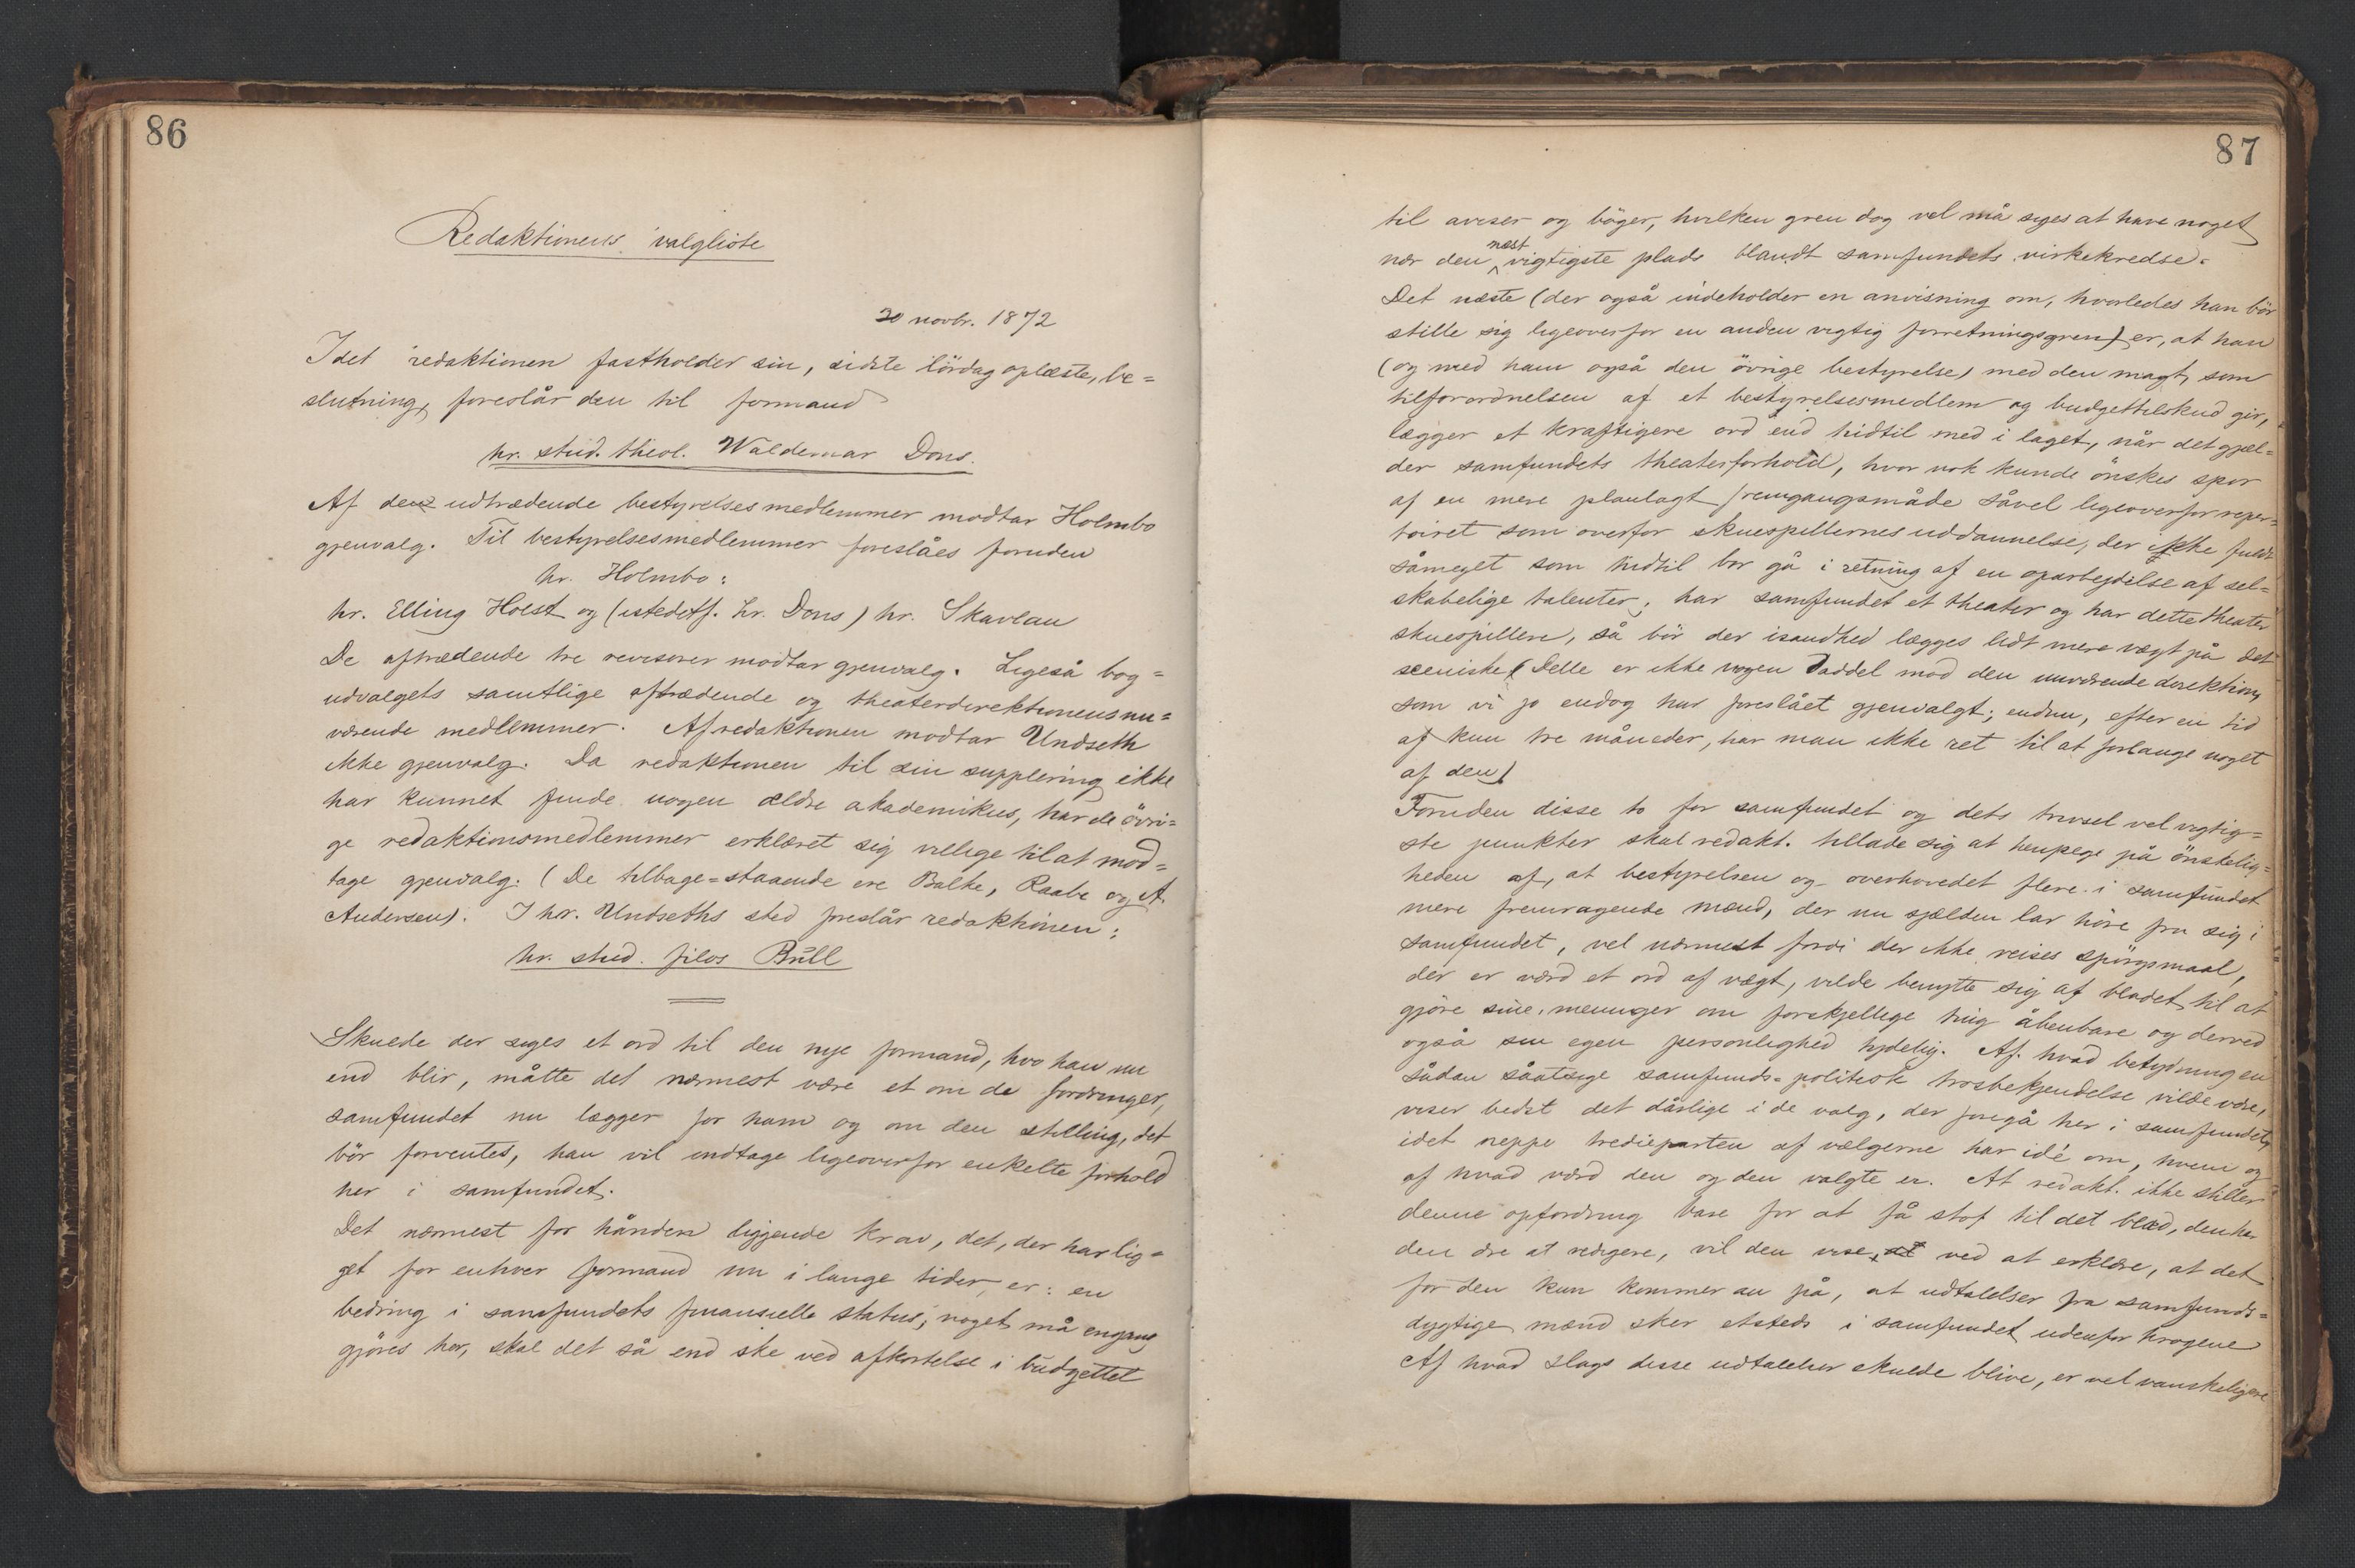 86
Redaktionens valgliste
30 novbr. 1872
Idet redaktionen fastholder sin, sidste lördag oplæste, be=
slutning, foreslår den til formand
hr. stud. theol. Waldemar Dons.
Af de udtrædende bestyrelsesmedlemmer modtar Holmbo
gjenvalg. Til bestyrelsesmedlemmer foreslåes foruden
hr. Holmbo:
hr. Elling Holst og (istedetf. hr. Dons) hr. Skavlan
De aftrædende tre revisorer modtar gjenvalg. Ligeså bog=
udvalgets samtlige aftrædende og theaterdirektionens nu=
værende medlemmer. Af redaktionen modtar Undseth
ikke gjenvalg. Da redaktionen til sin supplering ikke
har kunnet finde nogen ældre akademikus, har de övri=
ge redaktionsmedlemmer erklæret sig villige til at mod=
tage gjenvalg. (De tilbage=staaende ere Balke, Raabe og A.
Andersen). I hr. Undseths sted foreslår redaktionen:
hr. stud. filos Büll
Skulde der siges et ord til den nye formand, hvo han nu
end blir, måtte det nærmest være et om de fordringer,
samfundet nu lægger for ham og om den stilling, det
bör forventes, han vil indtage ligeoverfor enkelte forhold
her i samfundet.
Det nærmest for hånden liggende krav, det, der har lig=
get for enhver formand nu i lange tider, er: en
bedring i samfundets finansielle status; noget må engang
gjöres her, skal det så end ske ved afkortelse i budgettet
87
til aviser og böger, hvilken gren dog vel må siges at have noget
nær den næst vigtigste plads blandt samfundets virkekredse.
Det næste (der også indeholder en anvisning om, hvorledes han bör
stille sig ligeoverfor en anden vigtig forretningsgren) er, at han
(og med ham også den övrige bestyrelse) med den magt, som
tilforordnelsen af et bestyrelsesmedlem og budgettilskud gir,
lægger et kraftigere ord end hidtil med i laget, når det gjæl=
der samfundets theaterforhold, hvor nok kunde önskes spor
af en mere planlagt fremgangsmåde såvel ligeoverfor reper=
toiret som overfor skuespillernes uddannelse, der ikke fuldt
såmeget som hidtil bor gå i retning af en oparbejdelse af sel=
skabelige talenter; har samfundet et theater og har dette theater
skuespillere, så bör der isandhed lægges lidt mere vægt på det
sceniske (Dette er ikke nogen daddel mod den nuværende direktion,
som vi jo endog har foreslået gjenvalgt; endnu, efter en tid
af kun tre måneder, har man ikke ret til at forlange noget
af den)
Foruden disse to for samfundet og dets trivsel vel vigtig=
ste punkter skal redakt. tillade sig at henpege på önskelig=
heden af, at bestyrelsen og overhovedet flere i samfundet
mere fremragende mænd, der nu sjælden lar höre fra sig i
samfundet, vel nærmest fordi der ikke reises spörgsmaal,
der er værd et ord af vægt, vilde benytte sig af bladet til at
gjöre sine meninger om forskjellige ting åbenbare og derved
også sin egen personlighed tydelig. Af hvad betydning en
sådan såatsige samfunds=politisk trosbekjendelse vilde være,
viser bedst det dårlige i de valg, der foregå her i samfundet,
idet neppe trediéparten af vælgerne har idé om, hvem og
af hvad værd den og den valgte er. At redakt. ikke stiller
denne opfordring bare for at få stof til det blad, den har
den ære at redigere, vil den vise, ved at erklære, at det
for den kun kommer an på, at udtalelser fra samfunds=
dygtige mænd sker etsteds i samfundet udenfor krogene
Af hvad slags disse udtalelser skulde blive, er vel vanskeligere